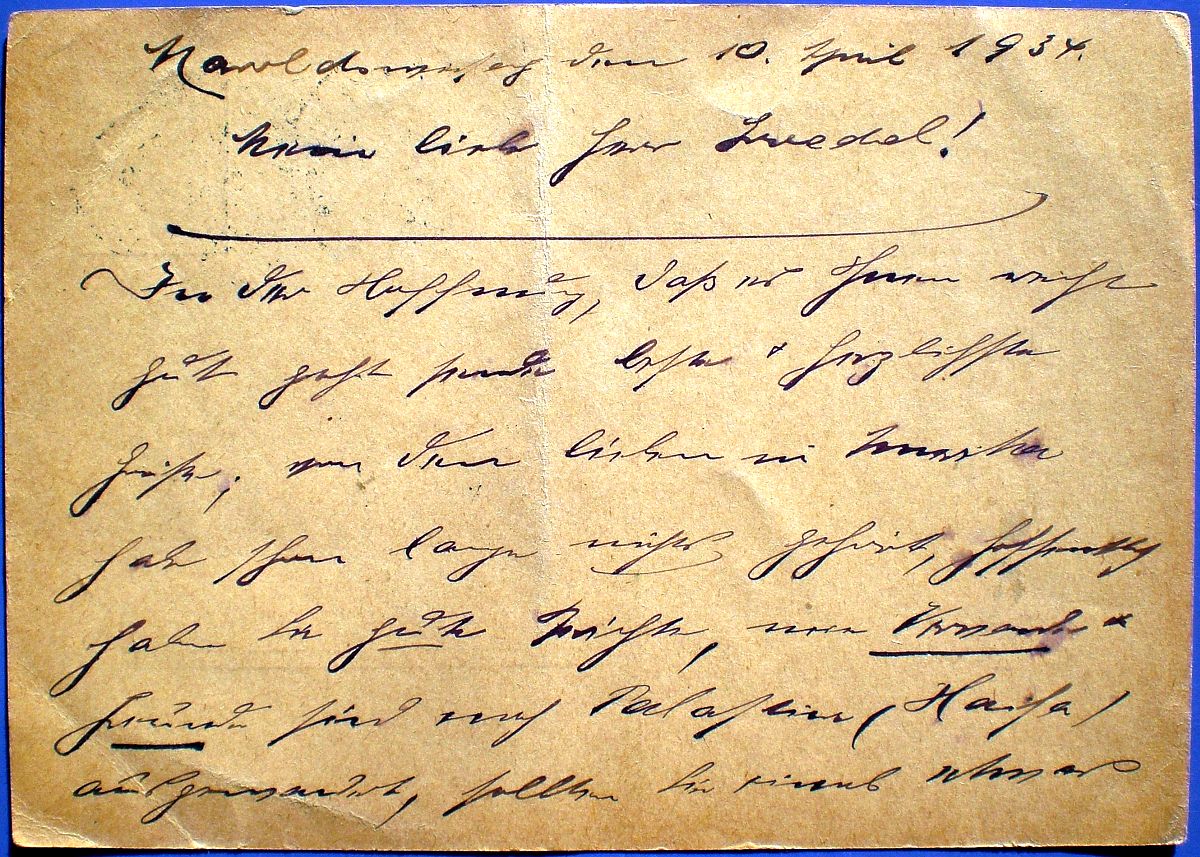 Maroldsweisach den 10. April 1934.
Mein lieber Herr
In der Hoffnung, daß es Ihnen recht
gut geht sende beste & herzlichste
Grüße, von den lieben in
habe schon lange nichts gehört, hoffentlich
haben Sie gute, meine Verwandte &
Freunde sind nach Palästina (Haifa)
ausgewandert, sollten Sie einmal etwas